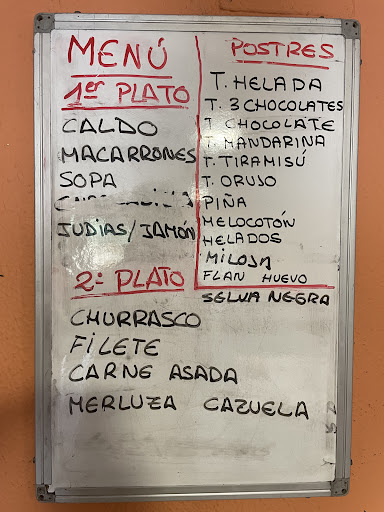 MENÚ
1er PLATO
CALDO
MACARRONES
SOPA
JUDIAS/JAMÓN
2º PLATO
CHURRASCO
FILETE
CARNE ASADA
MERLUZA CAZUELA
POSTRES
T. HELADA
T. 3 CHOCOLATES
T. CHOCOLATE
T. MANDARINA
T. TIRAMISÚ
T. ORUJO
PIÑA
MELOCOTÓN
HELADOS
FLAN HUEVO
SELVA NEGRA